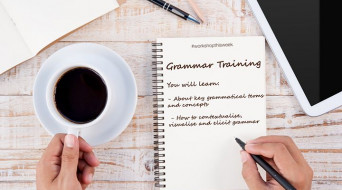 #workshopthisweek
Grammar Training
You will learn:
- About key grammatical terms
and concepts
- How to contextualise,
visualise and elicit grammar